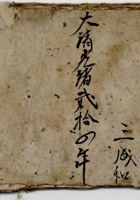 大清光緒貳拾四年
三成和